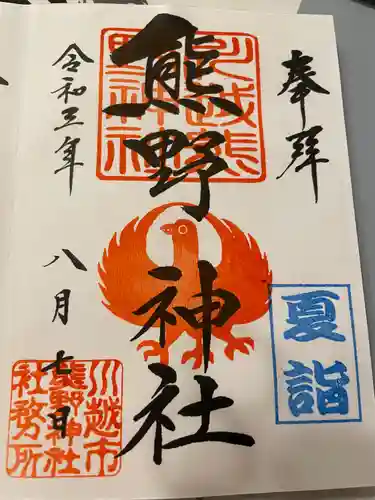 奉拝
川越熊野神社
熊野神社
夏詣
令和三年
八月
七日
川越市
熊野神社
社務所